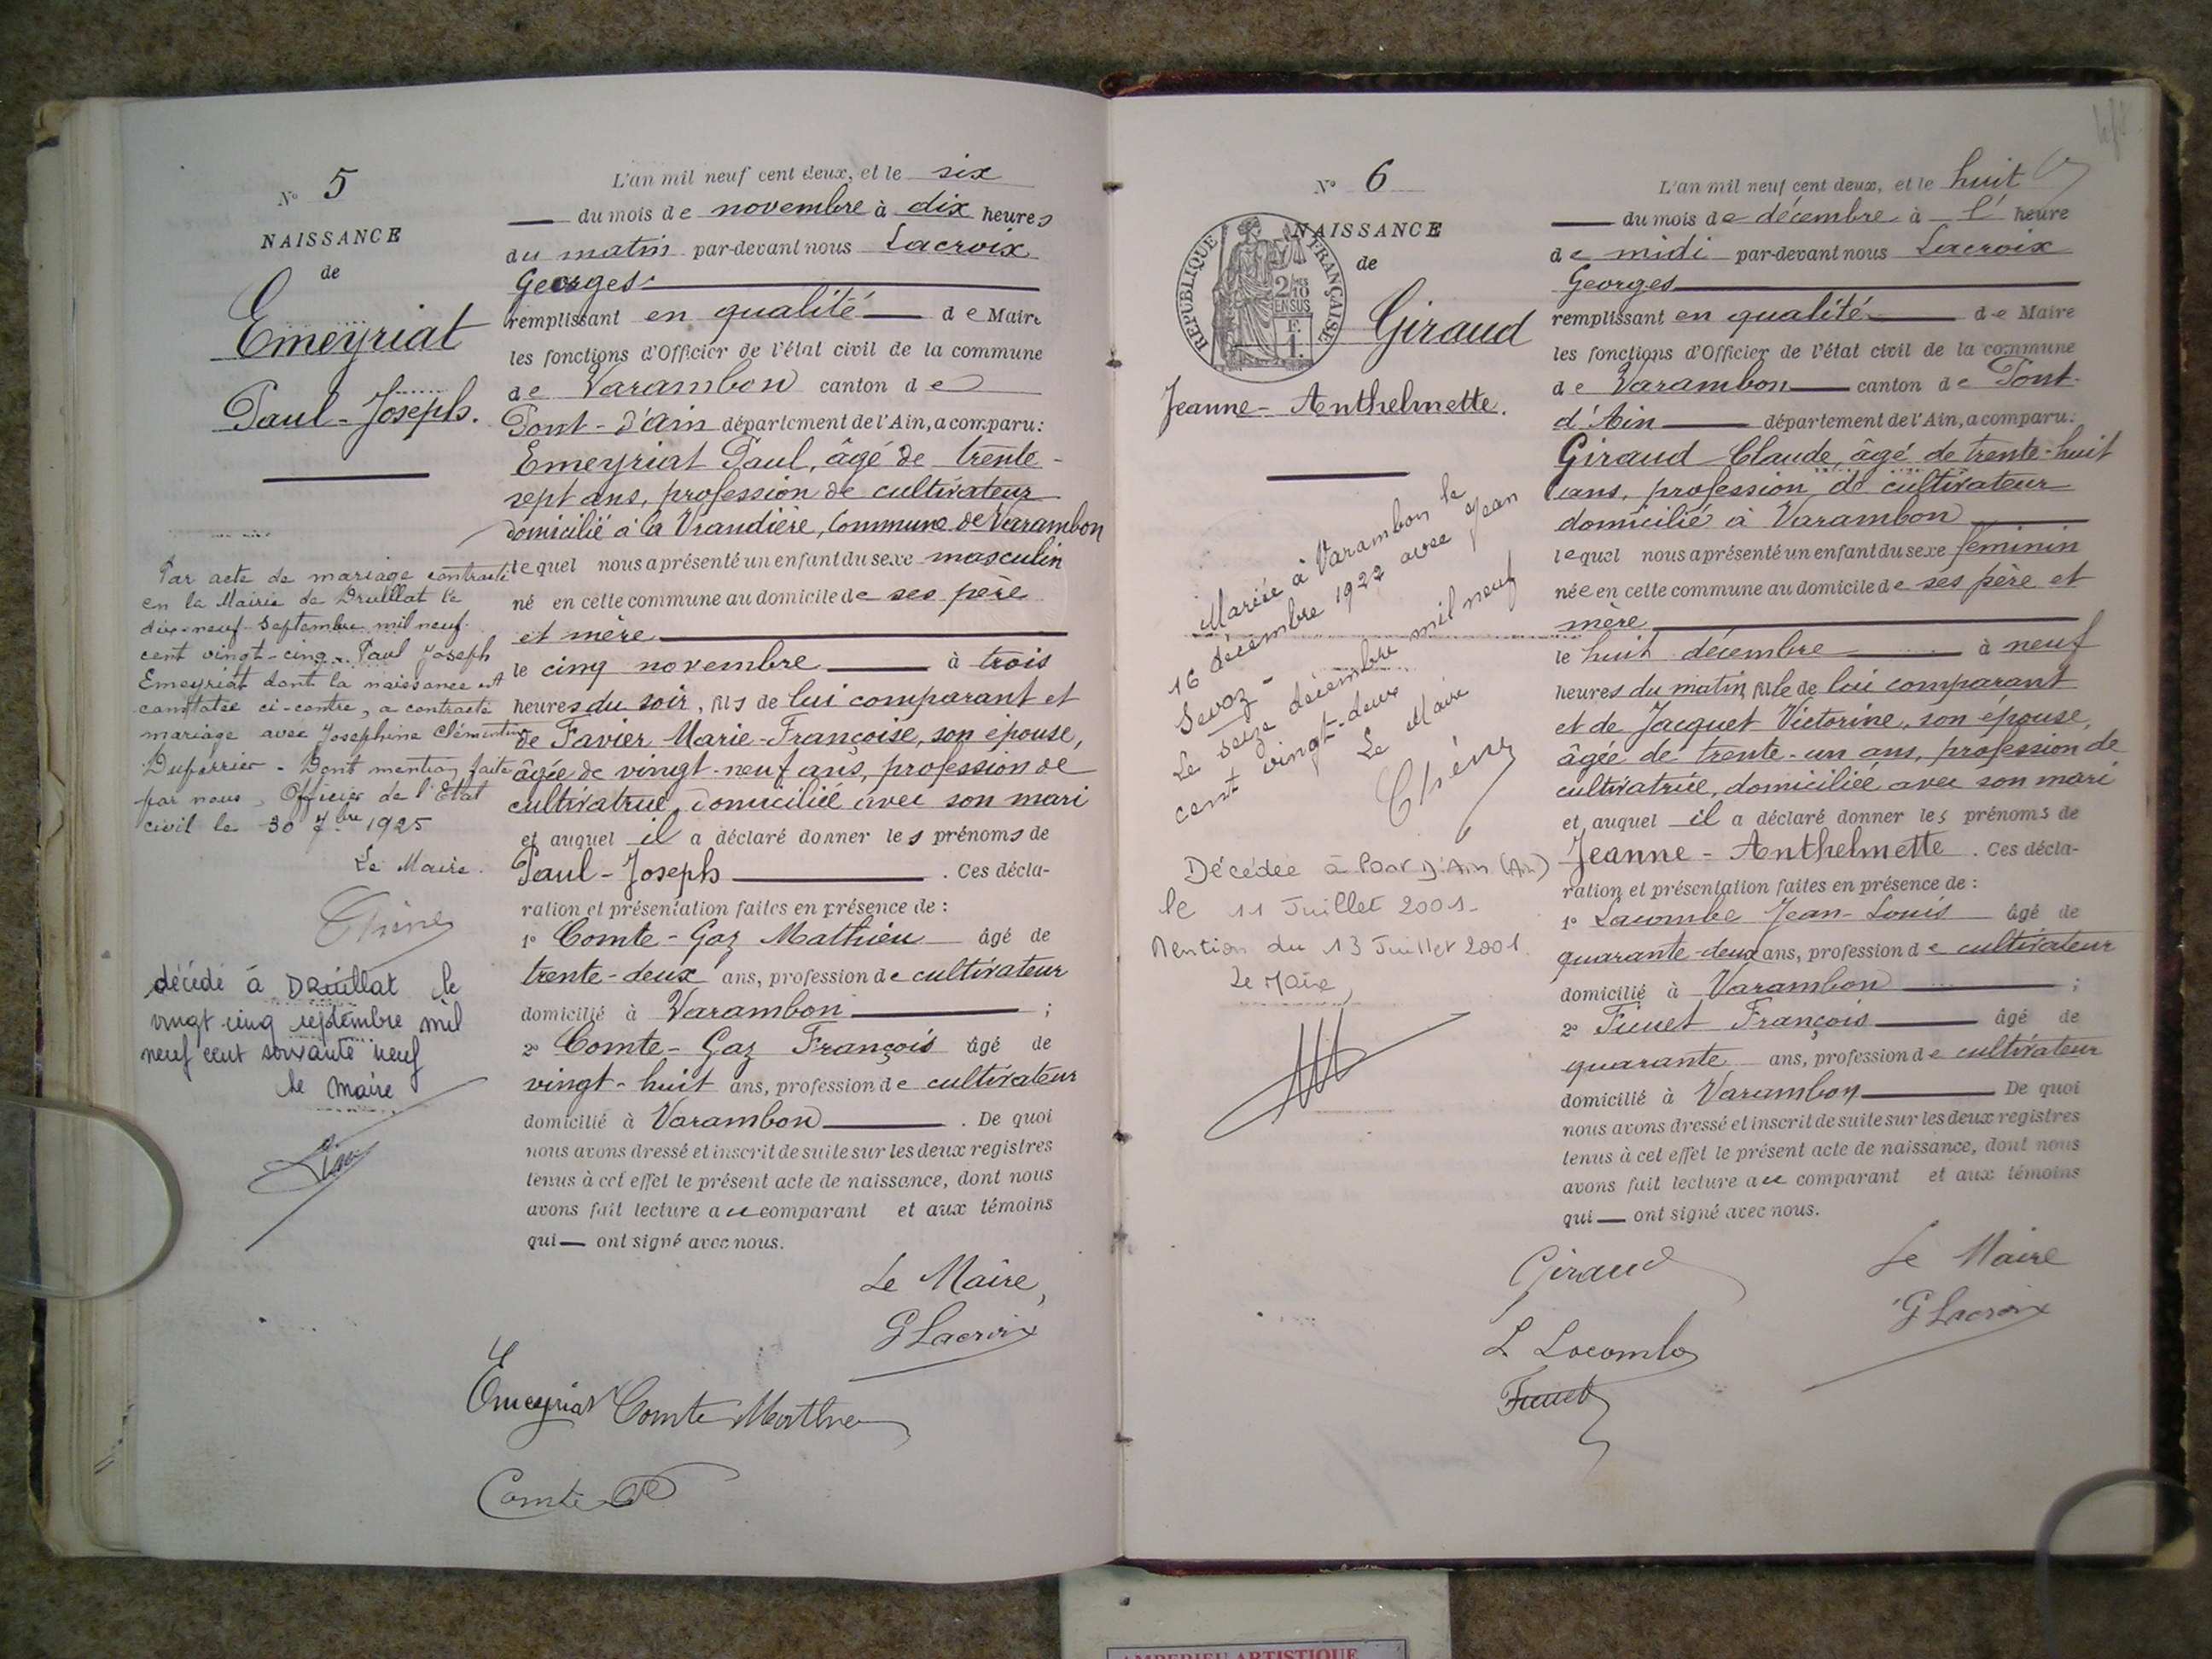 N° 5
NAISSANCE
de
Emeyriat
Paul-Joseph.
Par acte de mariage contracté
en la Mairie de Druillat le
dix-neuf septembre mil neuf
cent vingt-cinq. Paul Joseph
Emeyriat dont la naissance est
constatée ci-contre, a contracté
mariage avec Josephine Clémentine
Duferrier - Dont mention faite
par nous, Officier de l'Etat
civil le 30 7bre 1925
Le Maire.
décédé à DRuillat le
vingt cinq septembre mil
neuf cent soixante neuf
le Maire
L'an mil neuf cent deux, et le six
du mois de novembre à dix heures
du matin par-devant nous Lacroix
Georges
remplissant en qualité de Maire
les fonctions d'Officier de l'état civil de la commune
de Varambon canton de
Pont-d'Ain département de l'Ain, a comparu:
Emeyriat Paul, âgé de trente-
sept ans, profession de cultivateur
domicilié à la Vraudière, Commune de Varambon
lequel nous a présenté un enfant du sexe masculin
né en cette commune au domicile de ses père
et mère
le cinq novembre à trois
heures du soir, fils de lui comparant et
de Favier Marie-Françoise, son épouse,
âgée de vingt-neuf ans, profession de
cultivatrice, domiciliée avec son mari
et auquel il a déclaré donner les prénoms de
Paul-Joseph . Ces décla-
ration et présentation faites en présence de :
1° Comte-Gaz Mathieu âgé de
trente-deux ans, profession de cultivateur
domicilié à Varambon ;
2° Comte-Gaz François âgé de
vingt-huit ans, profession de cultivateur
domicilié à Varambon . De quoi
nous avons dressé et inscrit de suite sur les deux registres
tenus à cet effet le présent acte de naissance, dont nous
avons fait lecture au comparant et aux témoins
qui ont signé avec nous.
Le Maire,
G Lacroix
Emeyriat Comte Mathieu
Comte
N° 6
NAISSANCE
de
RÉPUBLIQUE FRANÇAISE
2/10 EN SUS
Giraud
Jeanne-Anthelmette.
Mariée à Varambon le
16 décembre 1922 avec Jean
Sevoz -
Le seize décembre mil neuf
cent vingt-deux
Le Maire
Décédée à Pont d'Ain (Ain)
le 11 Juillet 2001-
Mention du 13 Juillet 2001.
Le Maire,
L'an mil neuf cent deux, et le huit
du mois de décembre à l' heure
de midi par-devant nous Lacroix
Georges
remplissant en qualité de Maire
les fonctions d'Officier de l'état civil de la commune
de Varambon canton de Pont-
d'Ain département de l'Ain, a comparu:
Giraud Claude, âgé de trente-huit
ans, profession de cultivateur
domicilié à Varambon
lequel nous a présenté un enfant du sexe féminin
née en cette commune au domicile de ses père et
mère
le huit décembre à neuf
heures du matin, fille de lui comparant
et de Jacquet Victorine, son épouse,
âgée de trente-un ans, profession de
cultivatrice, domiciliée avec son mari
et auquel il a déclaré donner les prénoms de
Jeanne-Anthelmette . Ces décla-
ration et présentation faites en présence de :
1° Lacombe Jean-Louis âgé de
quarante-deux ans, profession de cultivateur
domicilié à Varambon ;
2° François âgé de
quarante ans, profession de cultivateur
domicilié à Varambon De quoi
nous avons dressé et inscrit de suite sur les deux registres
tenus à cet effet le présent acte de naissance, dont nous
avons fait lecture au comparant et aux témoins
qui ont signé avec nous.
Giraud Le Maire
G Lacroix
L Lacombe
AMBERIEU ARTISTIQUE